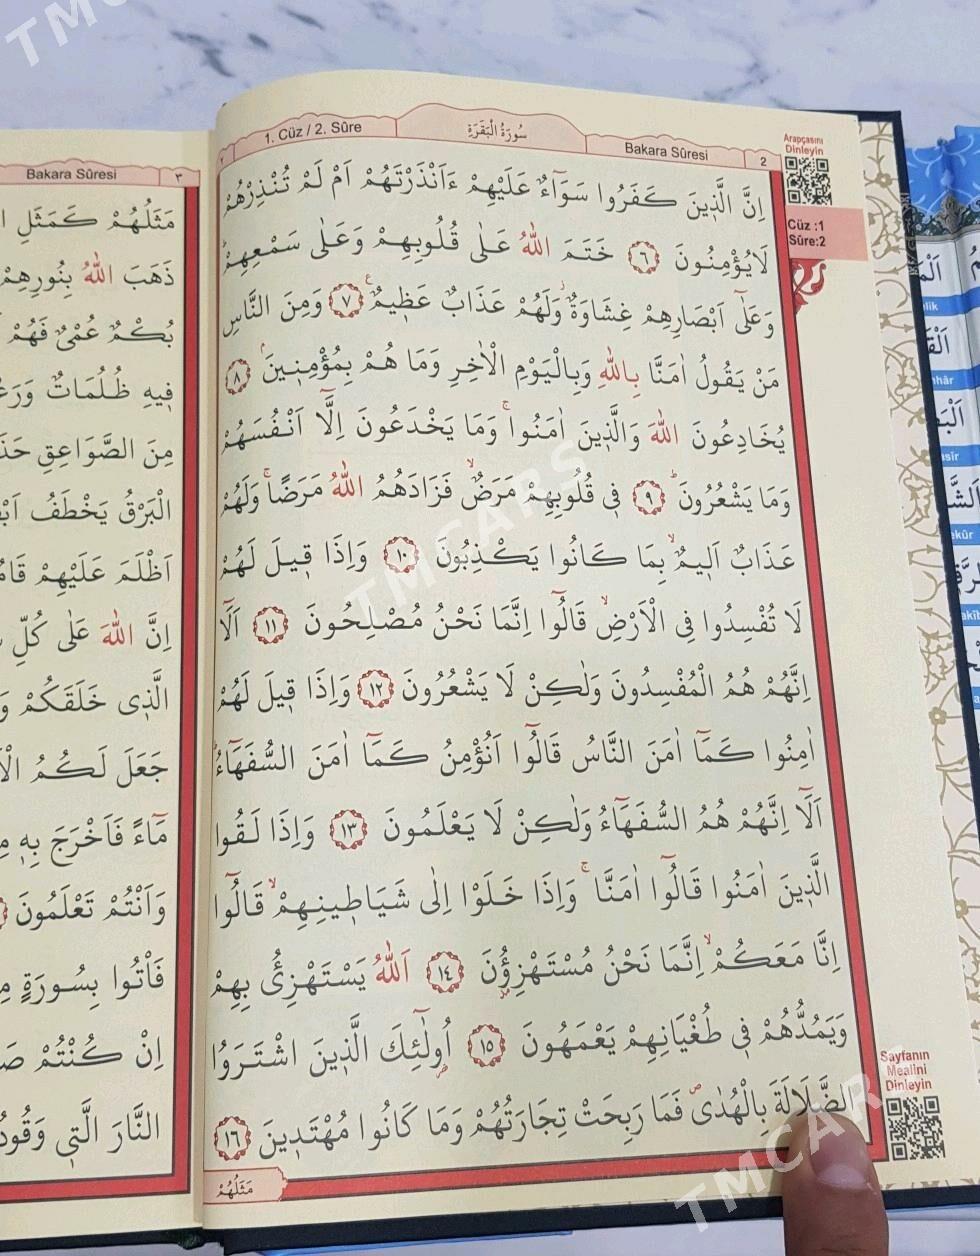 1. Cüz / 2. Sûre
سُورَةُ الْبَقَرَةِ
Bakara Sûresi
2
Arapçasını
Dinleyin
Cüz :1
Sûre:2
اِنَّ الَّذ۪ينَ كَفَرُوا سَوَٓاءٌ عَلَيْهِمْ ءَاَنْذَرْتَهُمْ اَمْ لَمْ تُنْذِرْهُمْ
لَا يُؤْمِنُونَ ﴿٦﴾ خَتَمَ اللّٰهُ عَلٰى قُلُوبِهِمْ وَعَلٰى سَمْعِهِمْۜ
وَعَلٰٓى اَبْصَارِهِمْ غِشَاوَةٌۘ وَلَهُمْ عَذَابٌ عَظ۪يمٌ۟ ﴿٧﴾ وَمِنَ النَّاسِ
مَنْ يَقُولُ اٰمَنَّا بِاللّٰهِ وَبِالْيَوْمِ الْاٰخِرِ وَمَا هُمْ بِمُؤْمِن۪ينَۢ ﴿٨﴾
يُخَادِعُونَ اللّٰهَ وَالَّذ۪ينَ اٰمَنُواۚ وَمَا يَخْدَعُونَ اِلَّٓا اَنْفُسَهُمْ
وَمَا يَشْعُرُونَۜ ﴿٩﴾ ف۪ي قُلُوبِهِمْ مَرَضٌۙ فَزَادَهُمُ اللّٰهُ مَرَضًاۚ وَلَهُمْ
عَذَابٌ اَل۪يمٌۙ بِمَا كَانُوا يَكْذِبُونَ ﴿١٠﴾ وَاِذَا ق۪يلَ لَهُمْ
لَا تُفْسِدُوا فِي الْاَرْضِۙ قَالُٓوا اِنَّمَا نَحْنُ مُصْلِحُونَ ﴿١١﴾ اَلَٓا
اِنَّهُمْ هُمُ الْمُفْسِدُونَ وَلٰكِنْ لَا يَشْعُرُونَ ﴿١٢﴾ وَاِذَا ق۪يلَ لَهُمْ
اٰمِنُوا كَمَٓا اٰمَنَ النَّاسُ قَالُٓوا اَنُؤْمِنُ كَمَٓا اٰمَنَ السُّفَهَٓاءُۜ
اَلَٓا اِنَّهُمْ هُمُ السُّفَهَٓاءُ وَلٰكِنْ لَا يَعْلَمُونَ ﴿١٣﴾ وَاِذَا لَقُوا
الَّذ۪ينَ اٰمَنُوا قَالُٓوا اٰمَنَّاۚ وَاِذَا خَلَوْا اِلٰى شَيَاط۪ينِهِمْۙ قَالُٓوا
اِنَّا مَعَكُمْۙ اِنَّمَا نَحْنُ مُسْتَهْزِؤُ۫نَ ﴿١٤﴾ اَللّٰهُ يَسْتَهْزِئُ بِهِمْ
وَيَمُدُّهُمْ ف۪ي طُغْيَانِهِمْ يَعْمَهُونَ ﴿١٥﴾ اُو۬لٰٓئِكَ الَّذ۪ينَ اشْتَرَوُا
الضَّلَالَةَ بِالْهُدٰىۖ فَمَا رَبِحَتْ تِجَارَتُهُمْ وَمَا كَانُوا مُهْتَد۪ينَ ﴿١٦﴾
مَثَلُهُمْ
Sayfanın
Mealini
Dinleyin
Bakara Sûresi
٣
مَثَلُهُمْ كَمَثَلِ
ذَهَبَ اللّٰهُ بِنُورِهِمْ
بُكْمٌ عُمْيٌ فَهُمْ
ف۪يهِ ظُلُمَاتٌ
مِنَ الصَّوَاعِقِ
الْبَرْقُ يَخْطَفُ
اَظْلَمَ عَلَيْهِمْ
اِنَّ اللّٰهَ عَلٰى كُلِّ
الَّذ۪ي خَلَقَكُمْ
جَعَلَ لَكُمُ
مَٓاءً فَاَخْرَجَ بِه۪
وَاَنْتُمْ تَعْلَمُونَ
فَأْتُوا بِسُورَةٍ
اِنْ كُنْتُمْ
النَّارَ الَّت۪ي
TMCARS
TMCARS